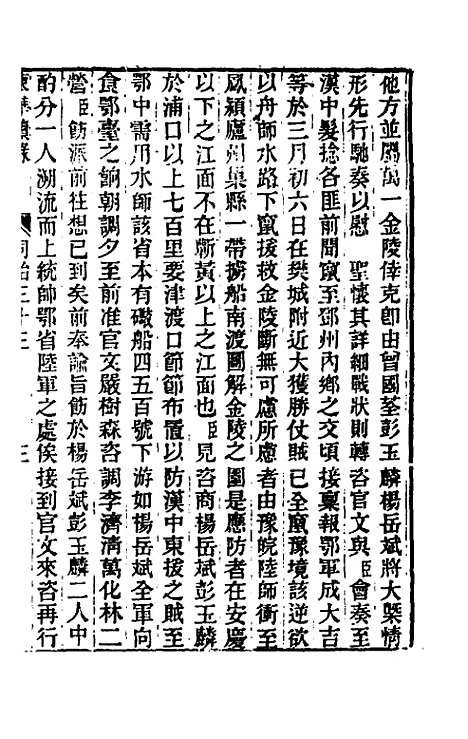 他方並屬萬一金陵倖克卽由曾國荃彭玉麟楊岳斌將大槩情
形先行馳奏以慰 聖懷其詳細戰狀則轉咨官文與臣會奏至
漢中髮捻各匪前聞竄至鄧州內鄉之交頃接稟報鄂軍成大吉
等於三月初六日在樊城附近大獲勝仗賊已全竄豫境該逆欲
以舟師水路下竄援救金陵斷無可慮所慮者由豫皖陸師衝至
鳳潁廬州巢縣一帶擄船南渡圖解金陵之圍是應防者在安慶
以下之江面不在蘄黃以上之江面也臣見咨商楊岳斌彭玉麟
於浦口以上七百里要津渡口節節布置以防漢中東援之賊至
鄂中需用水師該省本有礮船四五百號下游如楊岳斌全軍向
食鄂臺之餉朝調夕至前准官文嚴樹森咨調李濟淸萬化林二
營臣飭派前往想已到矣前奉諭旨飭於楊岳斌彭玉麟二人中
酌分一人溯流而上統師鄂省陸軍之處俟接到官文來咨再行
同治三十三 三